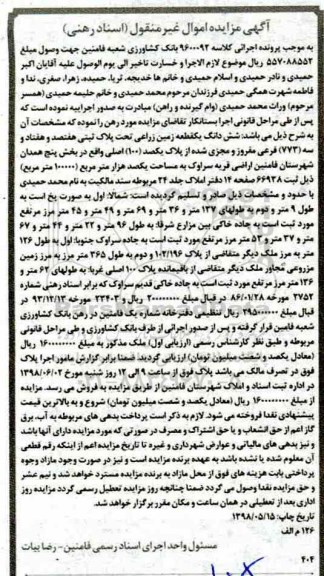 آگهی مزایده اموال غیر منقول (اسناد رهنی)
به موجب پرونده اجرائی کلاسه ۹۶۰۰۰۹۲ بانک کشاورزی شعبه فامنین جهت وصول مبلغ
۵۵۷۰۸۸۵۵۲ ریال موضوع لازم الاجرا و خسارت تاخیر الی یوم الوصول علیه آقایان اکبر
حمیدی و نادر حمیدی و اسلام حمیدی و خانم ها خدیجه، ثریا، حمیده، زهرا، صغری، ندا و
فاطمه شهرت همگی حمیدی فرزندان مرحوم محمد حمیدی و خانم حلیمه حمیدی (همسر
مرحوم) وراث محمد حمیدی (وام گیرنده و راهن) مبادرت به صدور اجراییه نموده است که
پس از طی مراحل قانونی اجرا بستانکار تقاضای مزایده مورد رهن را نموده که مشخصات آن
به شرح ذیل می باشد: شش دانگ یکقطعه زمین زراعتی تحت پلاک ثبتی هفتصد و هفتاد و
سه (۷۷۳) فرعی مفروز و مجزی شده از پلاک یکصد (۱۰۰) اصلی واقع در بخش پنج همدان
شهرستان فامنین اراضی قریه سراوک به مساحت یکصد هزار متر مربع (۱۰۰۰۰۰ متر مربع)
ذیل ثبت ۶۶۹۳۸ صفحه ۱۴ دفتر املاک جلد ۲۴ مربوطه سند مالکیت به نام محمد حمیدی
با حدود و مشخصات ذیل صادر و تسلیم گردیده است: شمالا: اول به صورت پخ است به
طول ۹ متر و دوم به طولهای ۱۳۷ متر و ۳۶ متر و ۶۹ متر و ۷۹ متر و ۴۵ متر مرز مرتفع
مورد ثبت است به جاده خاکی بین مزارع شرقا: به طول ۹۶ متر و ۲۲ متر و ۴۴ متر و ۶۷
متر و ۳۷ متر و ۵۲ متر مرز مرتفع مورد ثبت است به جاده سراوک جنوبا: اول به طول ۱۳۶
متر به مرز ملک دیگر متقاضی از پلاک ۱۰۲/۱۹۶ و دوم به طول ۳۶۵ متر مرز به مرز زمین
مزروعی مجاور ملک دیگر متقاضی از باقیمانده پلاک ۱۰۰ اصلی غربا: به طولهای ۶۲ متر و
۱۳۶ متر مرز مرتفع مورد ثبت است به جاده خاکی قدیم سراوک که برابر اسناد رهنی شماره
۲۷۵۲ مورخه ۸۶/۰۱/۲۸ در قبال مبلغ ۲۰۰۰۰۰۰۰۰ ریال و ۲۳۴۰۳ مورخه ۹۳/۱۲/۱۲ در
قبال مبلغ ۲۹۵۰۰۰۰۰۰ ریال تنظیمی دفترخانه شماره یک فامنین در رهن بانک کشاورزی
شعبه فامین قرار گرفته و پس از صدور اجرائی از طرف بانک کشاورزی و طی مراحل قانونی
مربوطه و طبق نظر کارشناس رسمی (ارزیابی اول) ملک مذکور به مبلغ ۱۶۰۰۰۰۰۰۰۰ ریال
(معادل یکصد و شصت میلیون تومان) ارزیابی گردید، ضمنا برابر گزارش مامور اجرا پلاک
فوق در تصرف مالک می باشد پلاک فوق از ساعت ۹ الی ۱۲ روز شنبه مورخ ۱۳۹۸/۰۶/۰۲
در اداره ثبت اسناد و املاک شهرستان فامنین از طریق مزایده به فروش می رسد. مزایده
از مبلغ ۱۶۰۰۰۰۰۰۰۰ ریال (معادل یکصد و شصت میلیون تومان) شروع و به بالاترین قیمت
پیشنهادی نقدا فروخته می شود. لازم به ذکر است پرداخت بدهی های مربوطه به آب، برق
گاز اعم از حق انشعاب و یا حق اشتراک و مصرف در صورتی که مورد مزایده دارای آنها باشد
و نیز بدهی های مالیاتی و عوارض شهرداری و غیره تا تاریخ مزایده اعم از اینکه رقم قطعی
آن معلوم شده یا نشده باشد به عهده برنده مزایده است و نیز در صورت وجود مازاد وجوه
پرداختی بابت هزینه های فوق از محل مازاد به برنده مزایده مسترد خواهد شد و نیم عشر
و حق مزایده نقدا وصول می گردد ضمنا چنانچه روز مزایده تعطیل رسمی گردد مزایده روز
اداری بعد از تعطیلی در همان ساعت و مکان مقرر برگزار خواهد شد.
تاریخ چاپ: ۱۳۹۸/۰۵/۱۵
۱۲۶ م الف
مسئول واحد اجرای اسناد رسمی فامنین - رضا بیات
۴۰۴